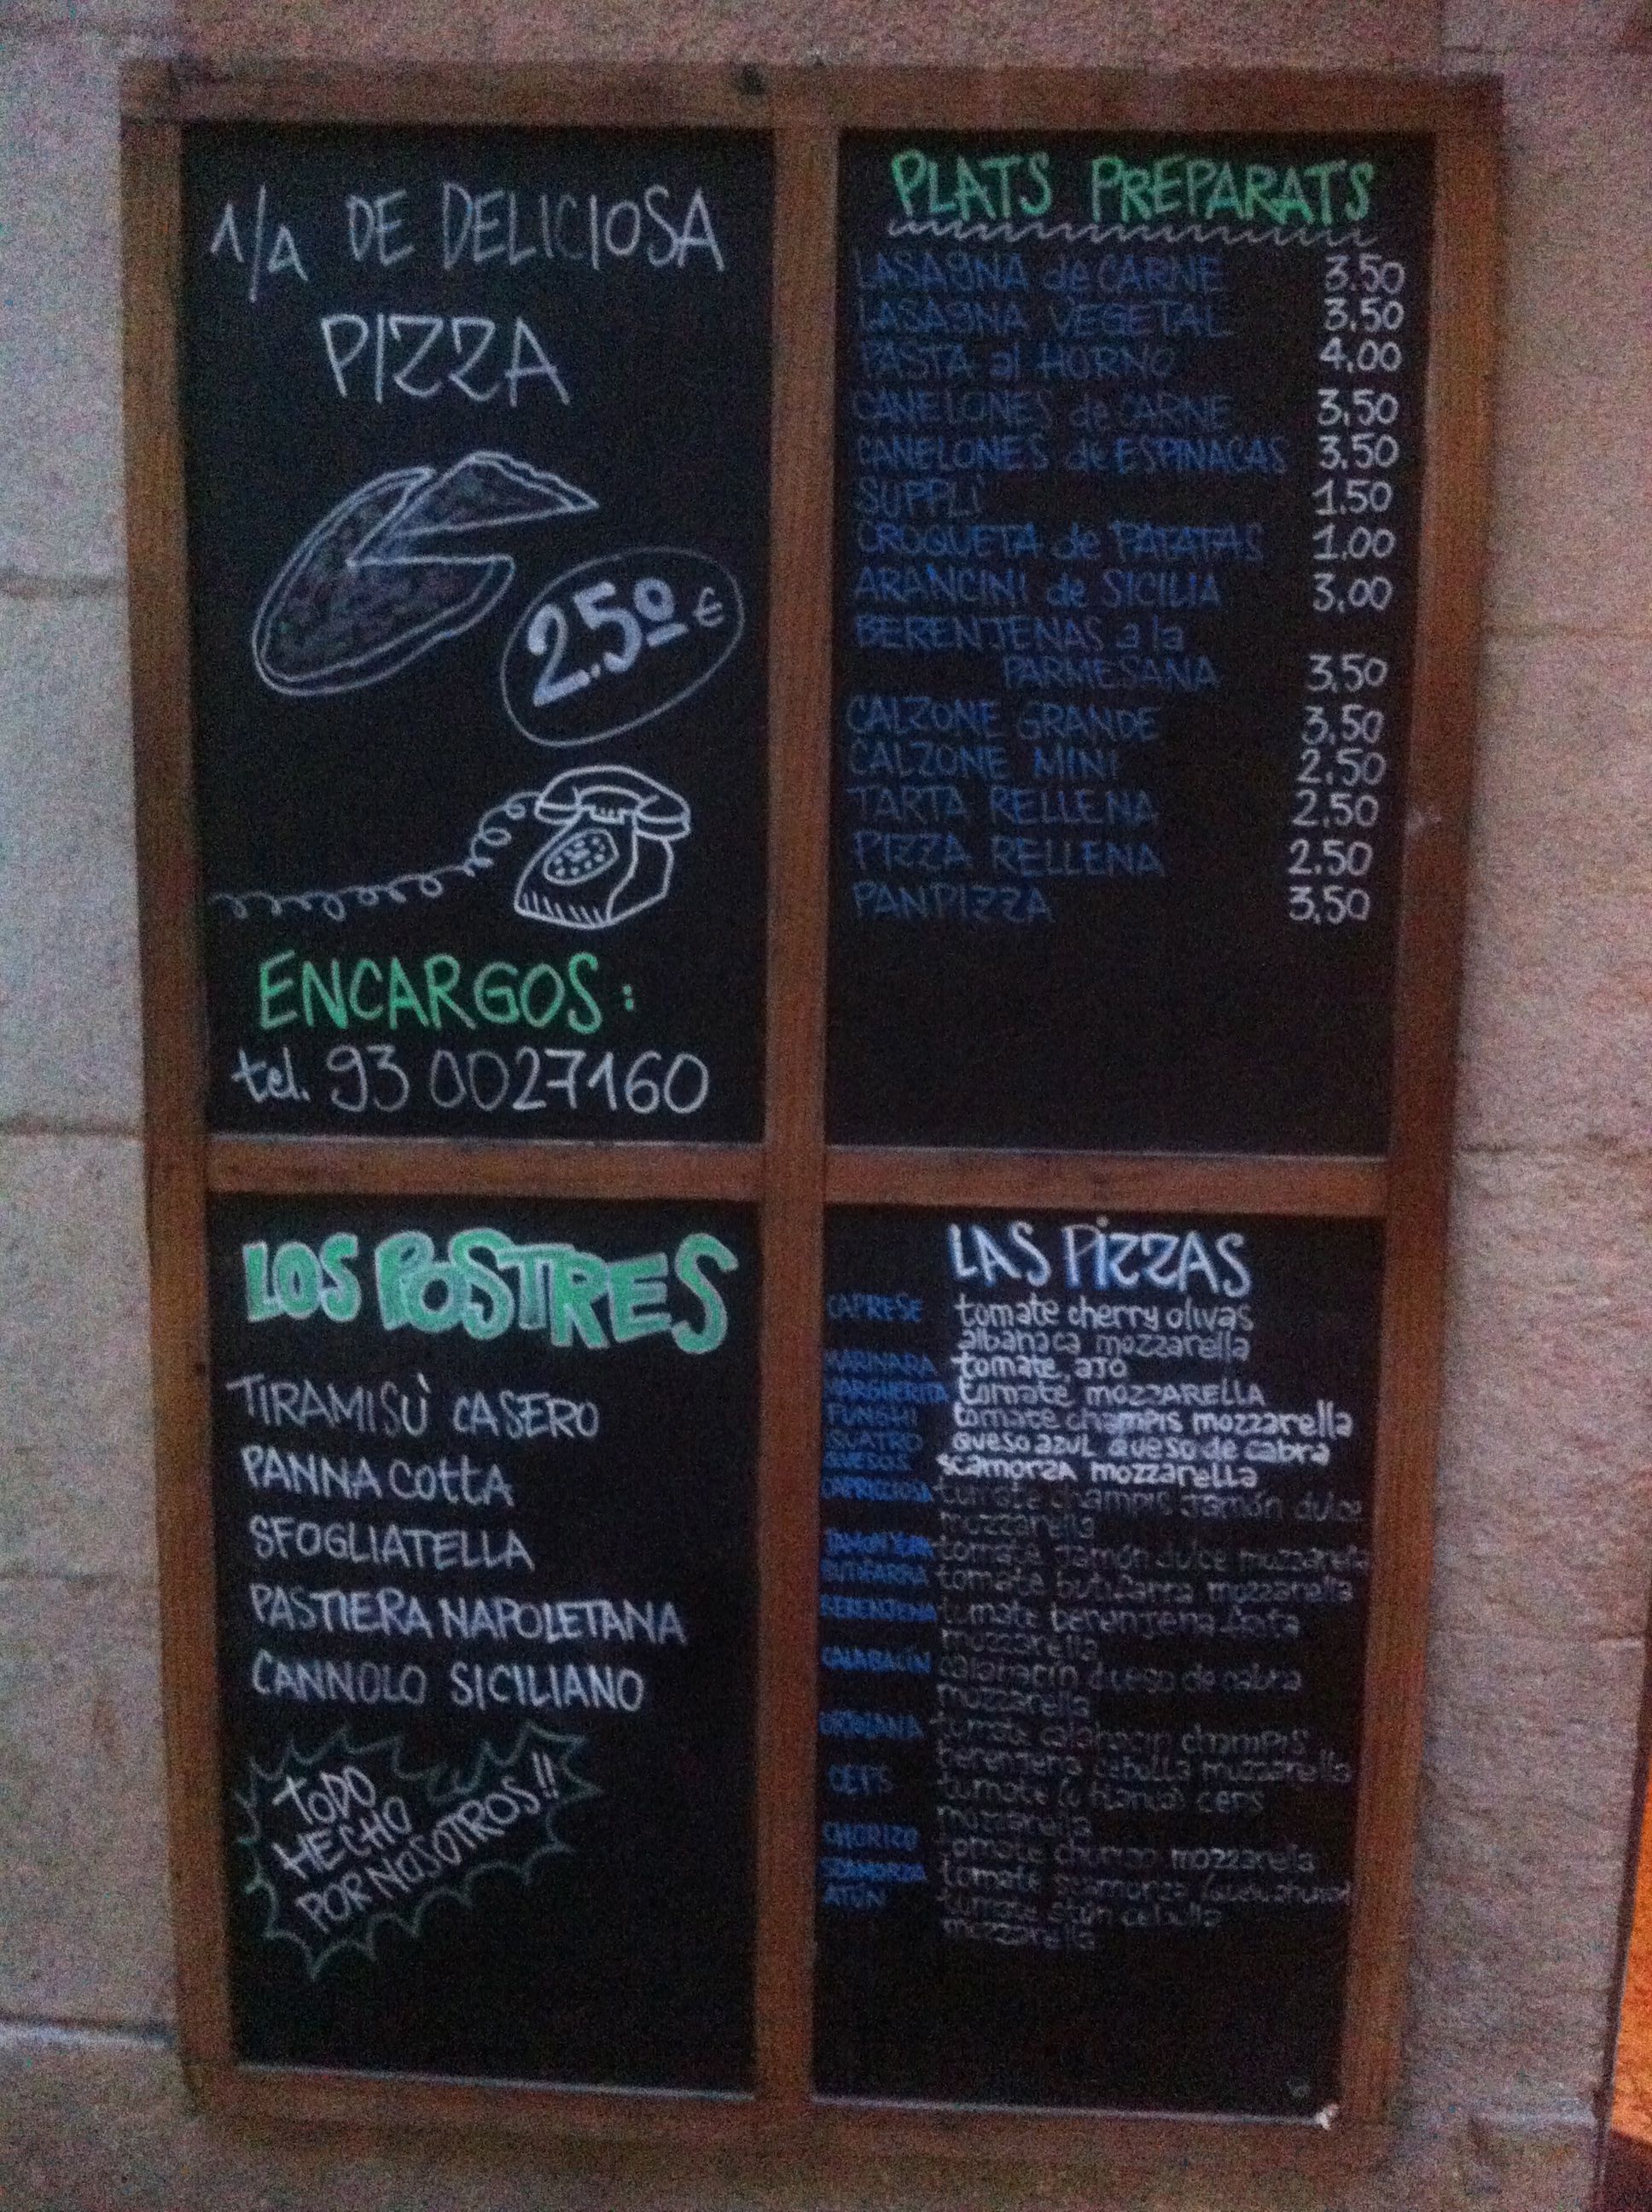 1/4 DE DELICIOSA
PIZZA
2.50 €
ENCARGOS:
tel. 93 0027160
PLATS PREPARATS
LASAGNA de CARNE 3.50
LASAGNA VEGETAL 3.50
PASTA al HORNO 4.00
CANELONES de CARNE 3.50
CANELONES de ESPINACAS 3.50
SUPPLÌ 1.50
CROQUETA de PATATAS 1.00
ARANCINI de SICILIA 3.00
BERENJENAS a la
PARMESANA 3.50
CALZONE GRANDE 3.50
CALZONE MINI 2.50
TARTA RELLENA 2.50
PIZZA RELLENA 2.50
PANPIZZA 3.50
LOS POSTRES
TIRAMISÙ CASERO
PANNA COTTA
SFOGLIATELLA
PASTIERA NAPOLETANA
CANNOLO SICILIANO
TODO
HECHO
POR NOSOTROS!!
LAS PIZZAS
CAPRESE tomate cherry olivas
albahaca mozzarella
MARINARA tomate, ajo
MARGUERITA tomate MOZZARELLA
FUNGHI tomate champis mozzarella
QUATRO queso azul queso de cabra
QUESOS scamorza mozzarella
CAPRICCIOSA tomate champis jamón dulce
mozzarella
tomate jamón dulce mozzarella
BUTIFARRA tomate butifarra mozzarella
BERENJENA tomate berenjena frita
mozzarella
CALABACÍN calabacín queso de cabra
mozzarella
ORTOLANA tomate calabacin champis
berenjena cebolla mozzarella
CEPS tomate (o blanca) ceps
mozzarella
CHORIZO tomate chorizo mozzarella
SCAMORZA tomate scamorza
ATÚN tomate atún cebolla
mozzarella